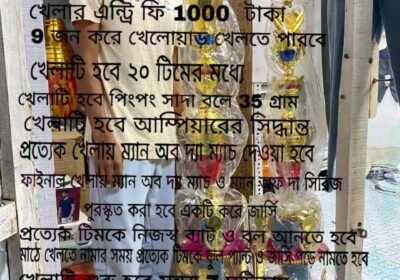 খেলার এন্ট্রি ফি 1000 টাকা
9 জন করে খেলোয়াড় খেলতে পারবে
খেলাটি হবে ২০ টিমের মধ্যে
খেলাটি হবে পিংপং সাদা বলে 35 গ্রাম
খেলাটি হবে আম্পিয়ারের সিদ্ধান্ত
প্রত্যেক খেলায় ম্যান অব দ্যা ম্যাচ দেওয়া হবে
ফাইনাল খেলায় ম্যান অব দ্যা ম্যাচ ও ম্যান অফ দা সিরিজ
পুরস্কৃত করা হবে একটি করে জার্সি
প্রত্যেক টিমকে নিজস্ব ব্যাট ও বল আনতে হবে
মাঠে খেলতে নামার সময় প্রত্যেক টিমকে ফুল প্যান্ট ও জার্সি পড়ে নামতে হবে
খেলাটি